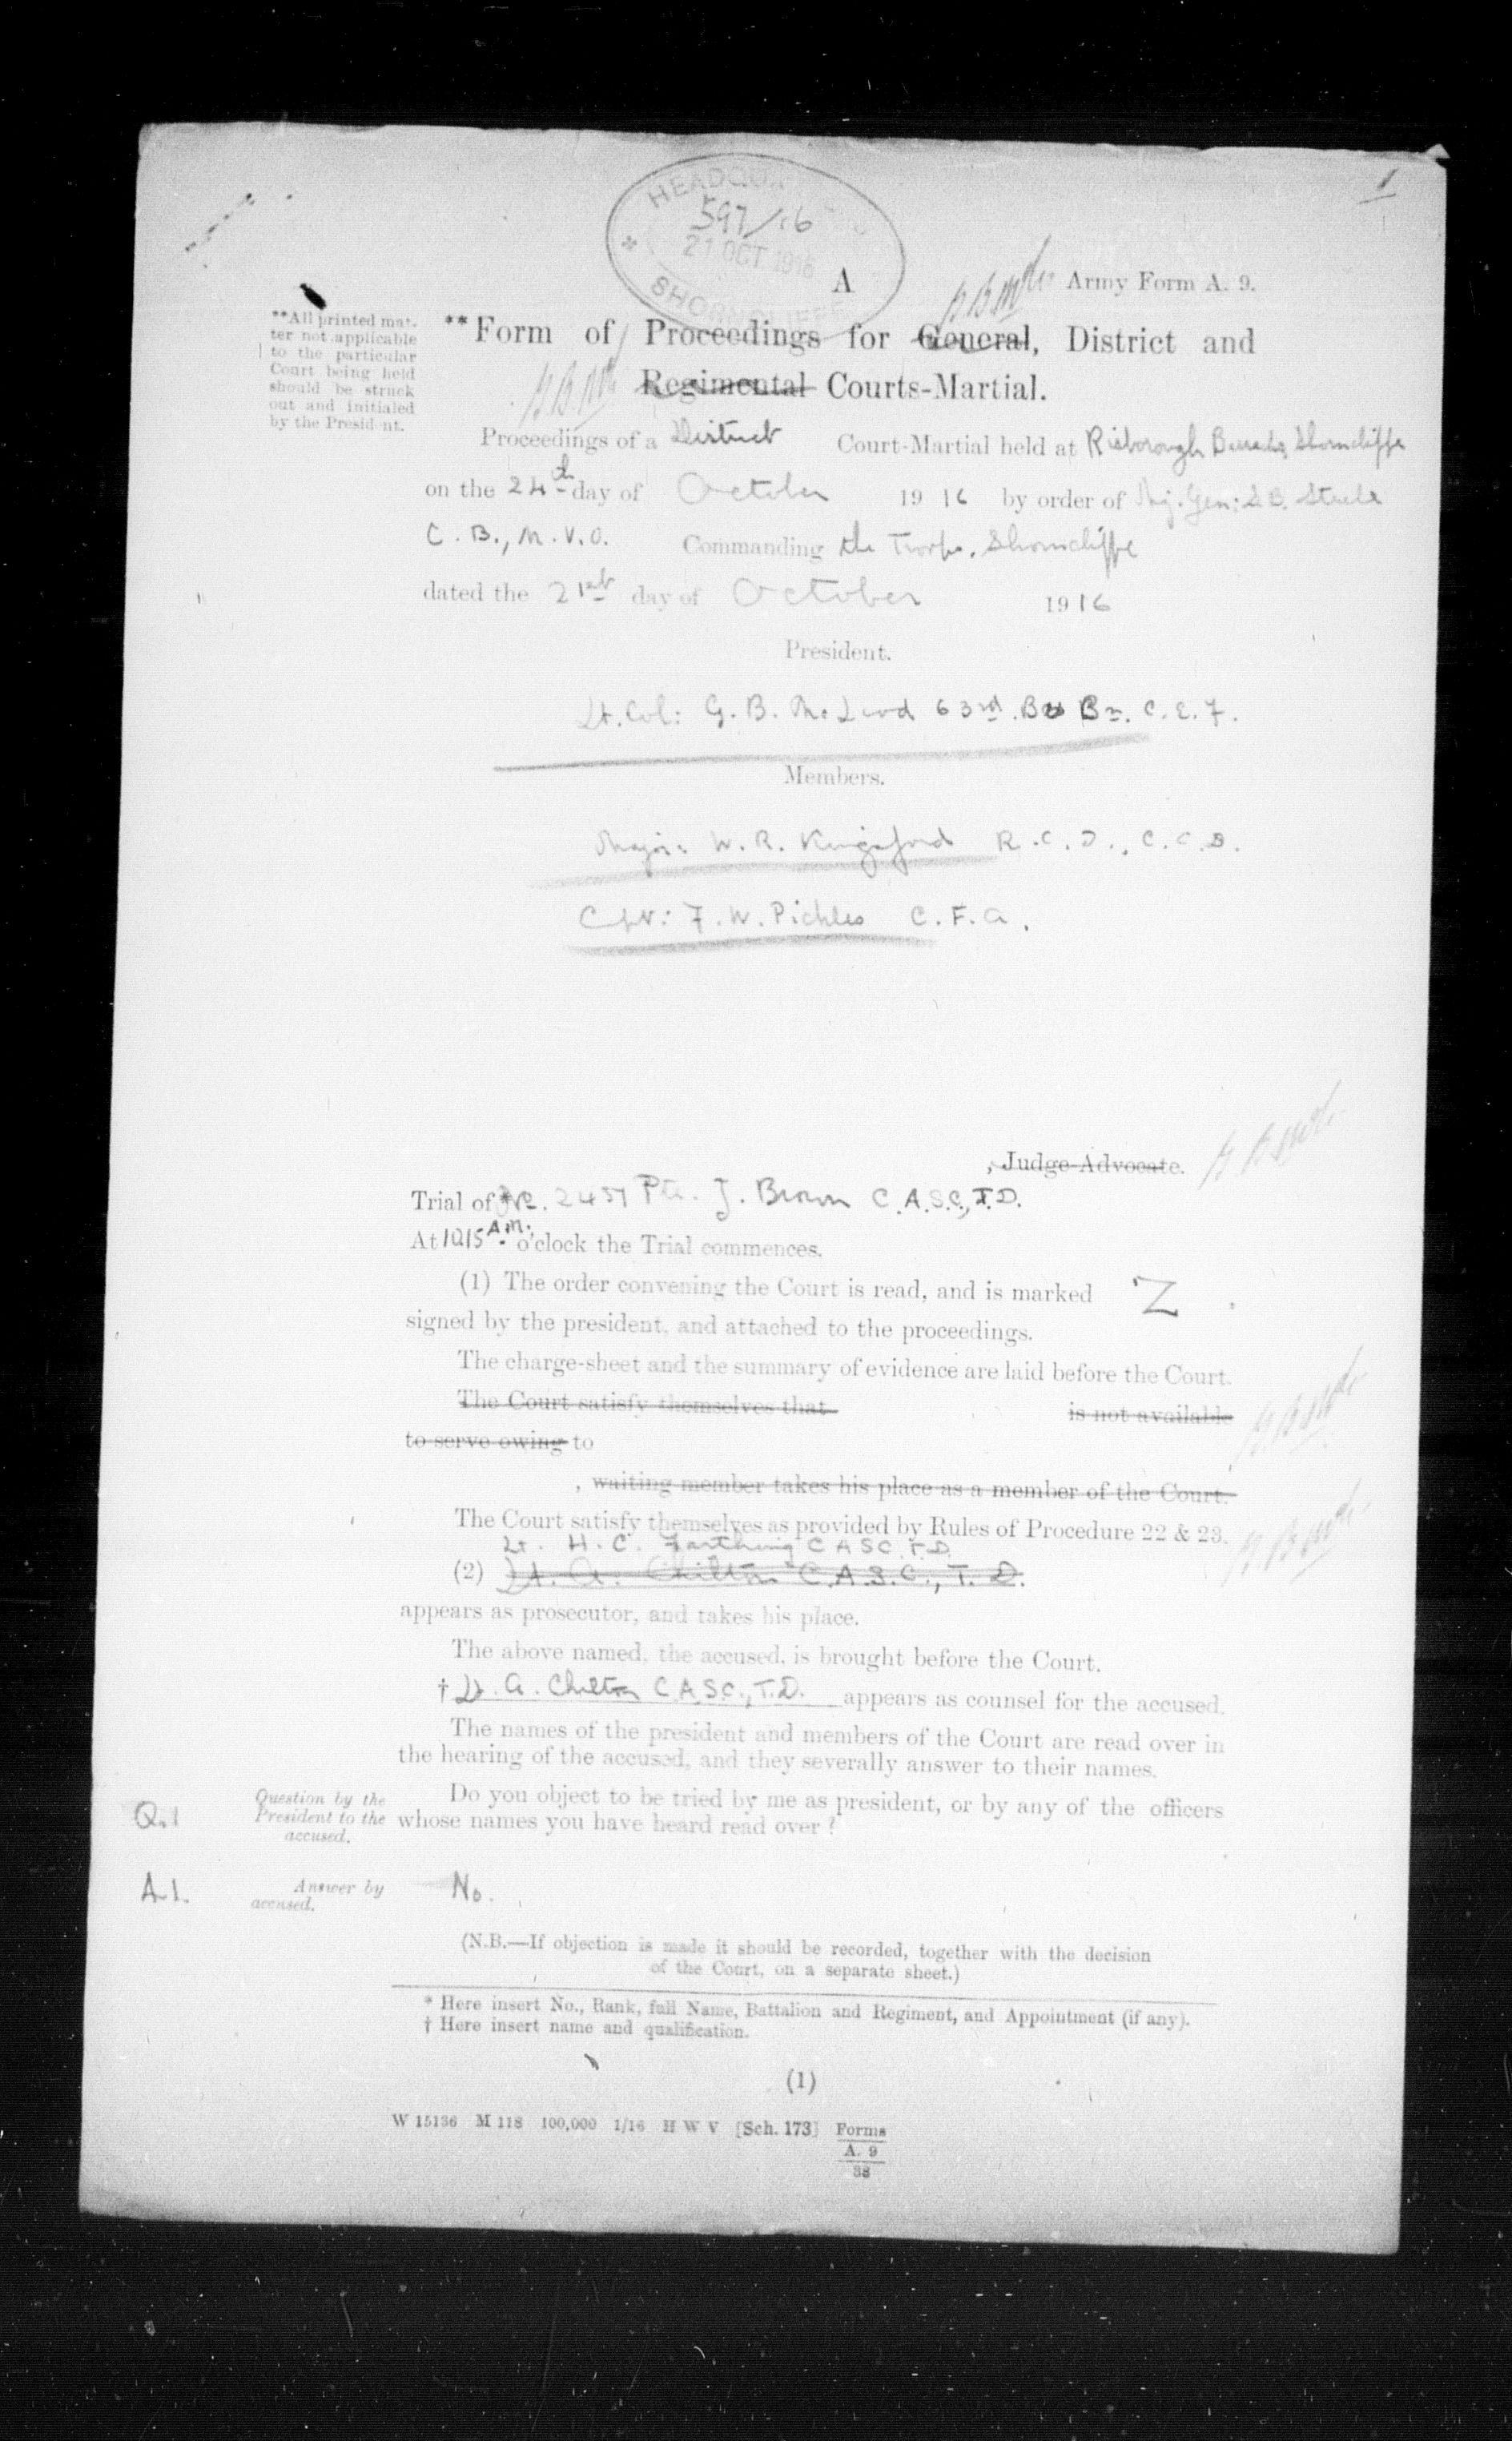 1
HEADQU
597/16
21 OCT 1916
SHORNCLIFFE
A
Army Form A. 9.
**All printed mat-
ter not applicable
to the particular
Court being held
should be struck
out and initialed
by the President.
**Form of Proceedings for General, District and
Regimental Courts-Martial.
Proceedings of a District Court-Martial held at Risborough Barracks Shorncliffe
on the 24th day of October 1916 by order of Maj. Gen: S.B. Steele
C.B., M.V.O. Commanding the Troops, Shorncliffe
dated the 21st day of October 1916
President.
Lt. Col: G. B. McLeod 63rd Bn. C.E.F.
Members.
Major: W. R. Kingsford R.C.D., C.C.D.
Capt: F. W. Pichles C.F.A.
, Judge-Advocate.
Trial of No. 2457 Pte. J. Brown C.A.S.C., T.D.
At 10.15 A.M. o'clock the Trial commences.
(1) The order convening the Court is read, and is marked Z .
signed by the president, and attached to the proceedings.
The charge-sheet and the summary of evidence are laid before the Court.
The Court satisfy themselves that is not available
to serve owing to
, waiting member takes his place as a member of the Court.
The Court satisfy themselves as provided by Rules of Procedure 22 & 23.
Lt. H. C. Farthing C A S C. T. D.
(2) Lt. A. Chilton C.A.S.C., T. D.
appears as prosecutor, and takes his place.
The above named, the accused, is brought before the Court.
† Lt. A. Chilton C.A.S.C., T.D. appears as counsel for the accused.
The names of the president and members of the Court are read over in
the hearing of the accused, and they severally answer to their names.
Q.1
Question by the
President to the
accused.
Do you object to be tried by me as president, or by any of the officers
whose names you have heard read over ?
A.1.
Answer by
accused.
No.
(N.B.—If objection is made it should be recorded, together with the decision
of the Court, on a separate sheet.)
* Here insert No., Rank, full Name, Battalion and Regiment, and Appointment (if any).
† Here insert name and qualification.
(1)
W 15136 M 118 100,000 1/16 H W V [Sch. 173] Forms
A. 9
38